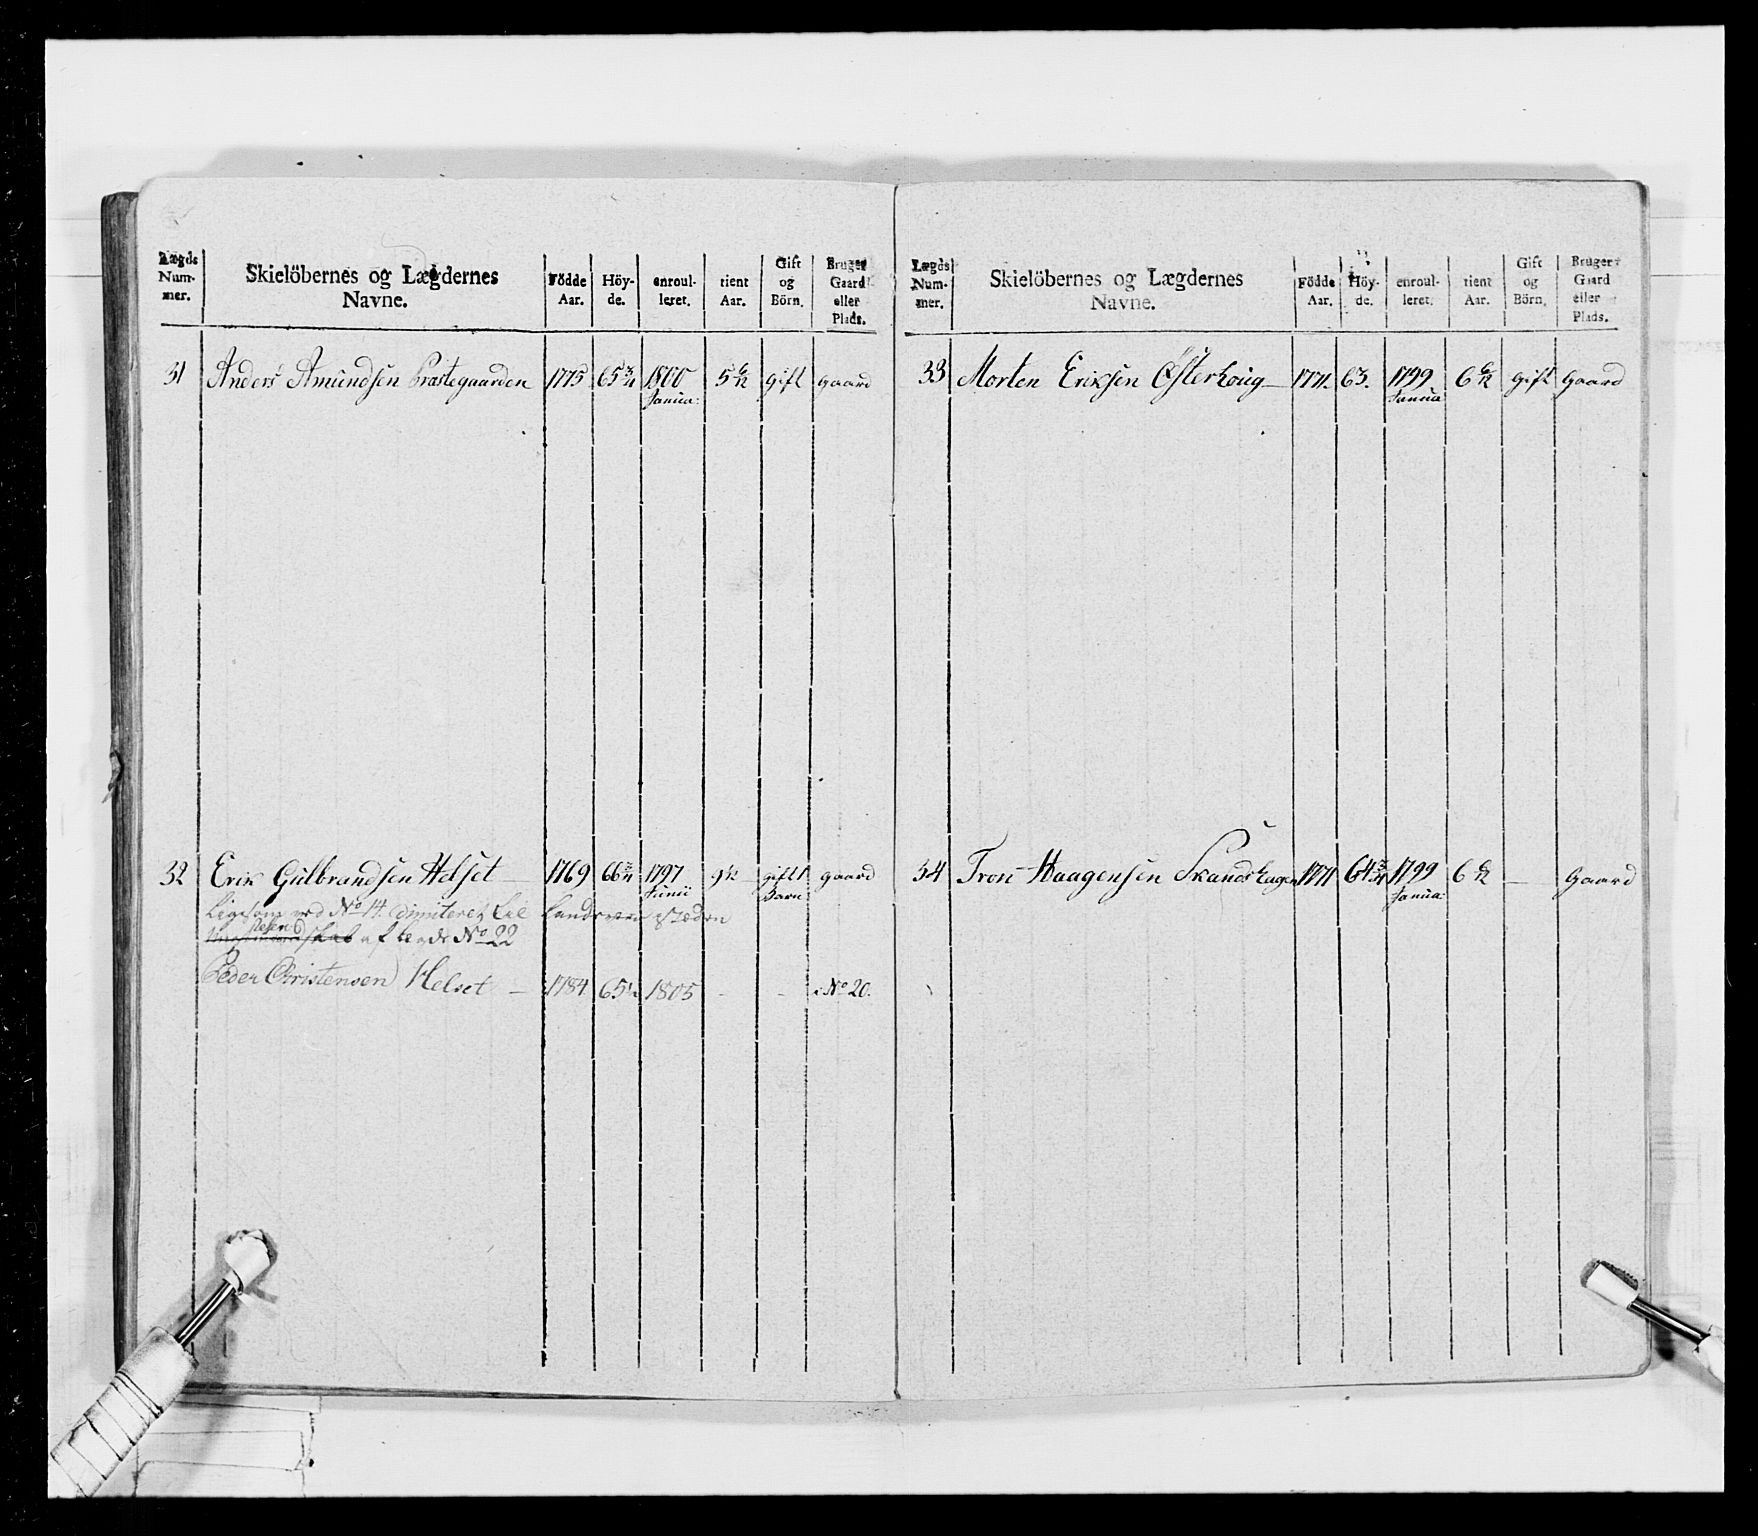 Lægds Num- mer. Skielöbernes og Lægdernes Navne. Födde Aar. Höy- de. enroul- leret. tient Aar. Gift og Börn. Bruger Gaard eller Plads.
31 Anders Amundsen Præstegaarden 1775 65 3/4 1800 Janua: 5 6/12 gift gaard
32 Erik Gulbrandsen Helset 1769 66 3/4 1797 Junii 9 1/2 gift 1 Barn gaard
Ligesom ved No 14. dimiteret til Landsværn Istæden
af No 22
Peder Christensen Helset – 1784 65 1/2 1805 - - i No 20.
Lægds Num- mer. Skielöbernes og Lægdernes Navne. Födde Aar. Höy- de. enroul- leret. tient Aar. Gift og Börn. Bruger Gaard eller Plads.
33 Morten Eriksen Østerhoug – 1771. 63. 1799 Janua 6 6/12 gift Gaard
34 Tron Haagensen Strandshagen 1771 64 3/4 1799 Janua: 6 6/12 — Gaard